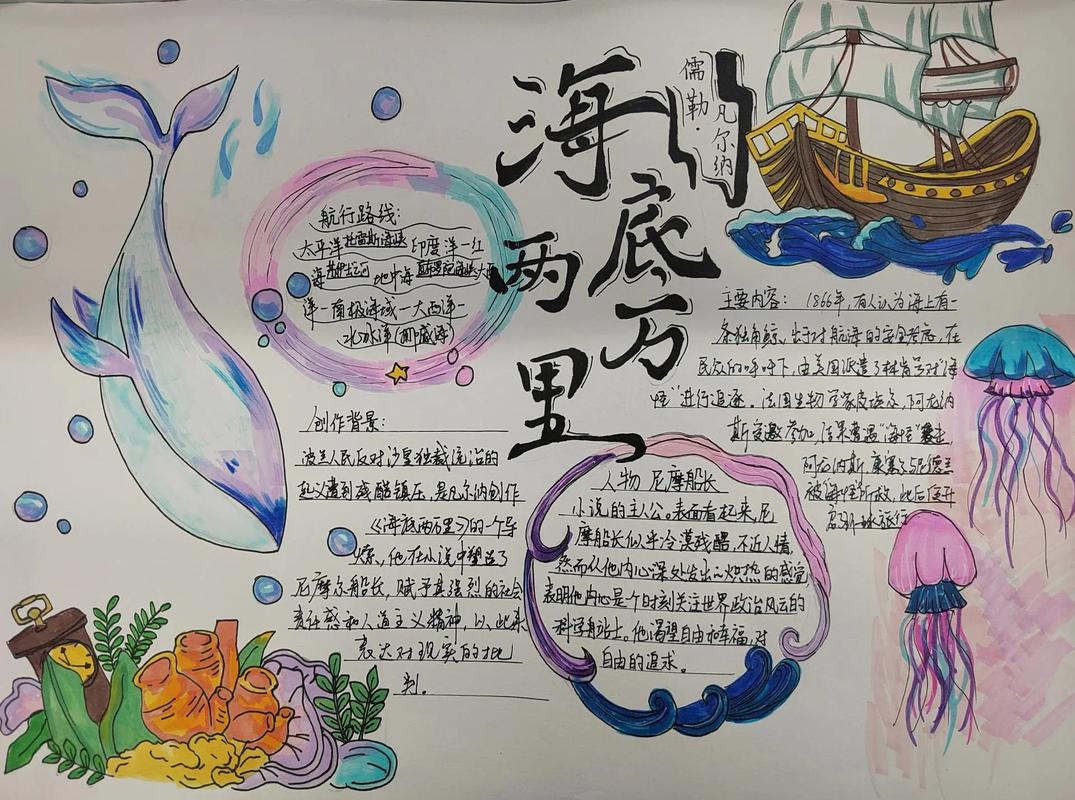 海底
两万里
儒勒·
凡尔纳
航行路线:
太平洋托雷斯海峡印度洋—红
海苏伊士运河地中海直布罗陀海峡大西
洋—南极海域—大西洋—
北冰洋(挪威海)
创作背景:
波兰人民反对沙皇独裁统治的
起义遭到残酷镇压,是凡尔纳创作
《海底两万里》的一个导
火索,他在小说中塑造了
尼摩尔船长,赋予其强烈的社会
责任感和人道主义精神,以此来
表达对现实的批
判。
主要内容: 1866年,有人认为海上有一
条独角鲸,出于对航海的安全考虑,在
民众的呼吁下,由美国派遣了林肯号对“海
怪”进行追逐。法国生物学家皮埃尔,阿龙纳
斯受邀参加,结果遭遇“海怪”袭击,
阿龙纳斯,康塞与尼德兰
被“海怪”所救,此后便开
启环球旅行
人物 尼摩船长
小说的主人公。表面看起来,尼
摩船长似乎冷漠残酷,不近人情,
然而从他内心深处发出的炽热的感觉
表明他内心是个时刻关注世界政治风云的
科学勇士。他渴望自由和幸福,对
自由的追求。